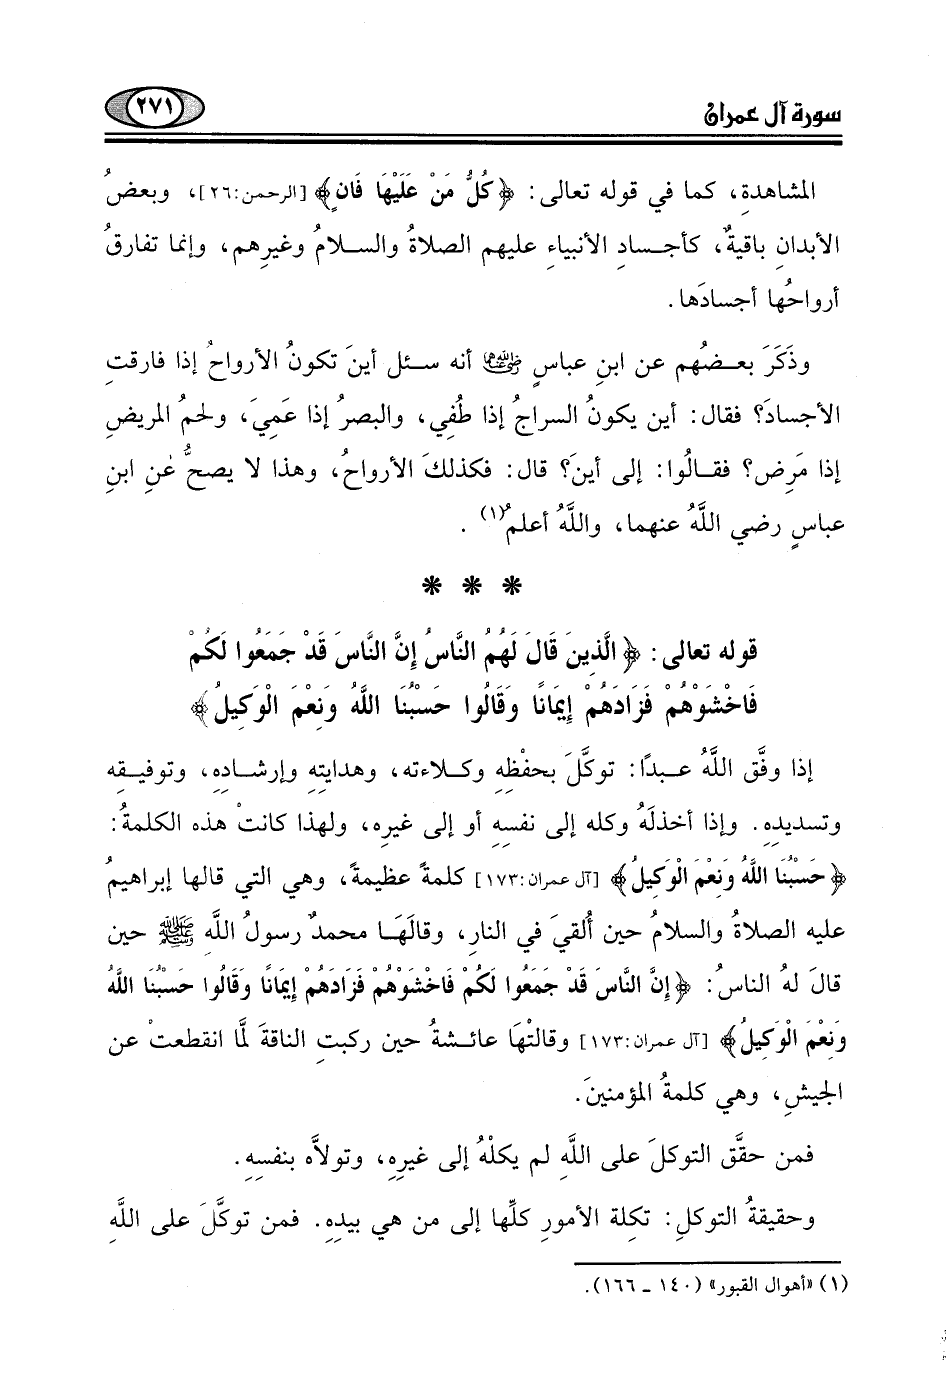 سورة آل عمران
٢٧١
المشاهدة، كما في قوله تعالى: ﴿كُلُّ مَنْ عَلَيْهَا فَانٍ﴾ [الرحمن:٢٦]، وبعضُ
الأبدانِ باقيةٌ، كأجسادِ الأنبياءِ عليهم الصلاةُ والسلامُ وغيرِهم، وإنما تفارقُ
أرواحُها أجسادَها.
وذَكَرَ بعضُهم عن ابنِ عباسٍ رضي الله عنهما أنه سئل أينَ تكونُ الأرواحُ إذا فارقتِ
الأجسادَ؟ فقال: أين يكونُ السراجُ إذا طُفِي، والبصرُ إذا عَمِيَ، ولحمُ المريضِ
إذا مَرِض؟ فقالُوا: إلى أينَ؟ قال: فكذلكَ الأرواحُ، وهذا لا يصحُّ عنِ ابنِ
عباسٍ رضي اللَّهُ عنهما، واللَّهُ أعلمُ(١).
* * *
قوله تعالى: ﴿الَّذِينَ قَالَ لَهُمُ النَّاسُ إِنَّ النَّاسَ قَدْ جَمَعُوا لَكُمْ
فَاخْشَوْهُمْ فَزَادَهُمْ إِيمَانًا وَقَالُوا حَسْبُنَا اللَّهُ وَنِعْمَ الْوَكِيلُ﴾
إذا وفَّق اللَّهُ عبدًا: توكَّلَ بحفظِهِ وكلاءتِه، وهدايتِهِ وإرشادِهِ، وتوفيقِهِ
وتسديدِهِ. وإذا أخذلَهُ وكله إلى نفسِهِ أو إلى غيرِه، ولهذا كانتْ هذه الكلمةُ:
﴿حَسْبُنَا اللَّهُ وَنِعْمَ الْوَكِيلُ﴾ [آل عمران:١٧٣] كلمةً عظيمةً، وهي التي قالها إبراهيمُ
عليه الصلاةُ والسلامُ حين أُلقيَ في النارِ، وقالَهَا محمدٌ رسولُ اللَّهِ ﷺ حين
قالَ لهُ الناسُ: ﴿إِنَّ النَّاسَ قَدْ جَمَعُوا لَكُمْ فَاخْشَوْهُمْ فَزَادَهُمْ إِيمَانًا وَقَالُوا حَسْبُنَا اللَّهُ
وَنِعْمَ الْوَكِيلُ﴾ [آل عمران:١٧٣] وقالتْهَا عائشةُ حين ركبتِ الناقةَ لمَّا انقطعتْ عن
الجيشِ، وهي كلمةُ المؤمنينَ.
فمن حقَّق التوكلَ على اللَّهِ لم يكلْهُ إلى غيرِهِ، وتولاَّه بنفسِهِ.
وحقيقةُ التوكلِ: تكلة الأمورِ كلِّها إلى من هي بيدِهِ. فمن توكَّلَ على اللَّهِ
(١) «أهوال القبور» (١٤٠ ـ ١٦٦).